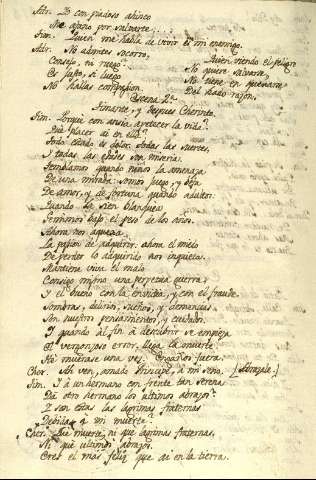 Adr. Y con piadoso ahinco
Me afano por salvarte....;
Tim. Quien me habla de vivir es mi enemigo.
Adr. No admites socorro,
Consejo, ni ruego:
Es justo, si luego
No hallas compasion
Quien viendo el peligro
No quiere salvarse,
No tiene en quexarse
Del hado razon.
Escena 2ª
Timante, y despues Cherinto.
Tim. Porqué con ansia apetecer la vida?
Qué placer ai en ella?
Todo estado es dolor. Todas las suertes,
I todas las edades son miseria.
Temblamos quando niños la amenaza
De una mirada: somos juego, y befa
De amor, y de fortuna quando adultos:
Quando la sien blanquea
Gemimos bajo el peso de los años.
Ahora nos aqueja
La pasion de adquirir: ahora el miedo
De perder lo adquirido nos inquieta.
Mantiene viva el malo
Consigo mismo una perpetua guerra;
Y el bueno con la envidia, y con el fraude.
Sombras, delirios, sueños, y demencias
Son nuestros pensamientos, y cuidados.
I quando al fin á descubrir se empieza
El vergonzoso error, llega la muerte
Ah! muérase una vez,
Cher. Ah ven, amado Principe, á mi seno. [Abrazale.]
Tim. I á un hermano con frente tan serena
Dá otro hermano los ultimos abrazos?
I son estas las lagrimas fraternas
Debidas á mi muerte?
Cher. Qué muerte, ni qué lagrimas fraternas,
Ni qué ultimos abrazos.
Eres el mas feliz que ai en la tierra.